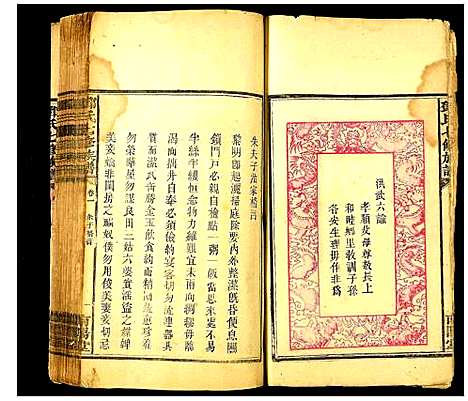 洪武六諭
孝順父母尊敬長上
和睦鄉里教訓子孫
各安生理毋作非為
朱夫子治家格言
黎明即起灑掃庭除要內外整潔既昏便息關
鎖門戶必親自檢點一粥一飯當思來處不易
半絲半縷恒念物力維艱宜未雨綢繆毋臨渴
掘井自奉必須儉約宴客切勿流連器具
質而潔瓦缶勝金玉飲食約而精園蔬愈珍羞
勿營華屋勿謀良田三姑六婆實淫盜之媒婢
美妾嬌非閨房之福奴僕勿用俊美妻妾切忌
七修族譜
卷一
南陽堂